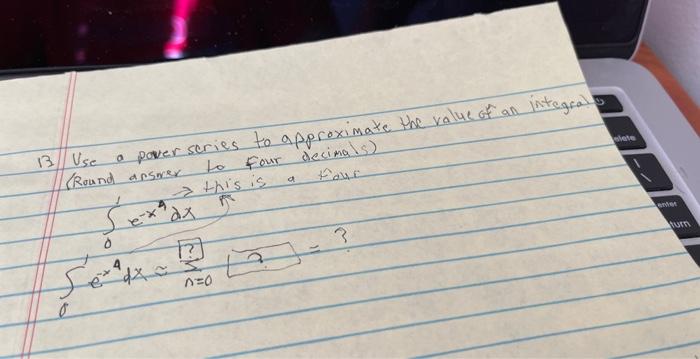 13 Use a power series to approximate the value of an integral
(Round answer to four decimals)
∫₀¹ e^-x⁴ dx → this is a four
∫₀¹ e^-x⁴ dx ≈ Σ n=0 [?] [?] = ?
elete
enter
turn